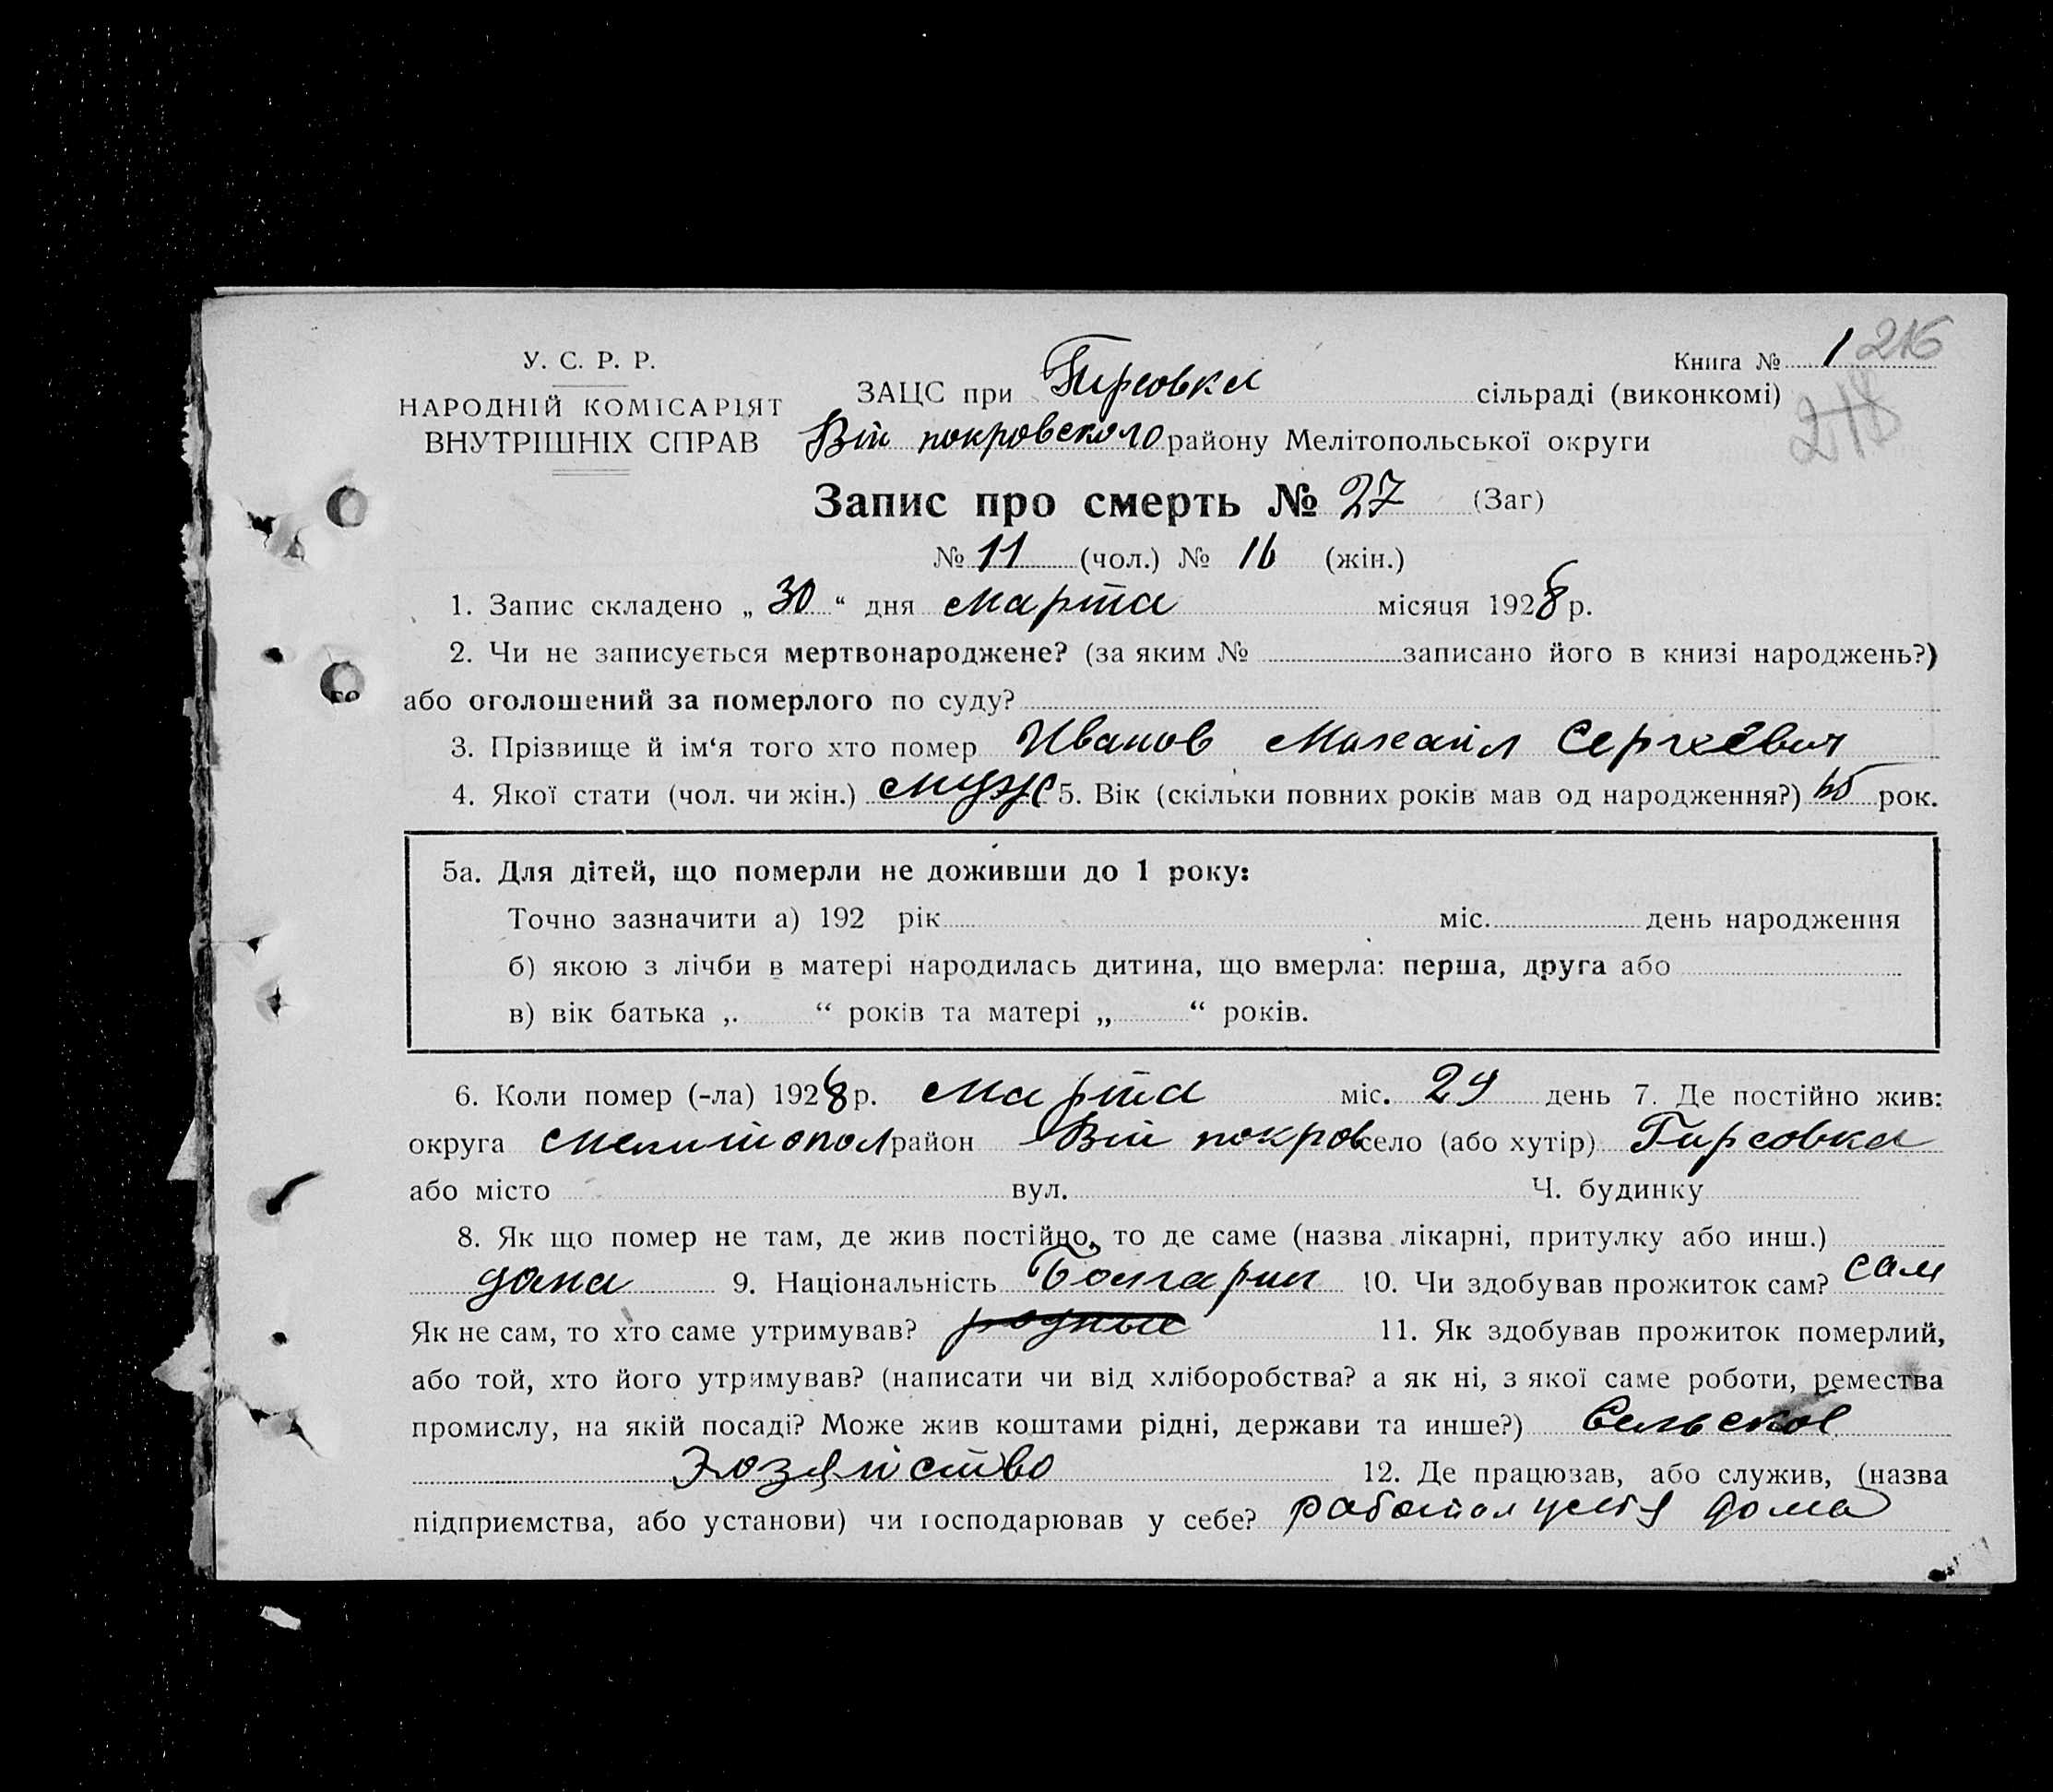 У. С. Р. Р.
НАРОДНІЙ КОМІСАРІЯТ
ВНУТРІШНІХ СПРАВ
Книга № 1 216
218
ЗАЦС при Гирсовка сільраді (виконкомі)
покровского району Мелітопольської округи
Запис про смерть № 27 (Заг)
№ 11 (чол.) № 16 (жін.)
1. Запис складено „ 30 “ дня марта місяця 1928 р.
2. Чи не записується мертвонароджене? (за яким № записано його в книзі народжень?)
або оголошений за померлого по суду?
3. Прізвище й ім‘я того хто помер Иванов Михаил Сергеевич
4. Якої стати (чол. чи жін.) муж 5. Вік (скільки повних років мав од народження?) рок.
5а. Для дітей, що померли не доживши до 1 року:
Точно зазначити а) 192 рік міс. день народження
б) якою з лічби в матері народилась дитина, що вмерла: перша, друга або
в) вік батька „ “ років та матері „ “ років.
6. Коли помер (-ла) 1928 р. марта міс. 29 день 7. Де постійно жив:
округа мелитопол район покров село (або хутір) Гирсовка
або місто вул. Ч. будинку
8. Як що помер не там, де жив постійно, то де саме (назва лікарні, притулку або инш.)
дома 9. Національність Болгарин 10. Чи здобував прожиток сам? сам
Як не сам, то хто саме утримував? родные 11. Як здобував прожиток померлий,
або той, хто його утримував? (написати чи від хліборобства? а як ні, з якої саме роботи, ремества
промислу, на якій посаді? Може жив коштами рідні, держави та инше?) Сельское
хозяйство 12. Де працював, або служив, (назва
підприємства, або установи) чи господарював у себе? работал дома